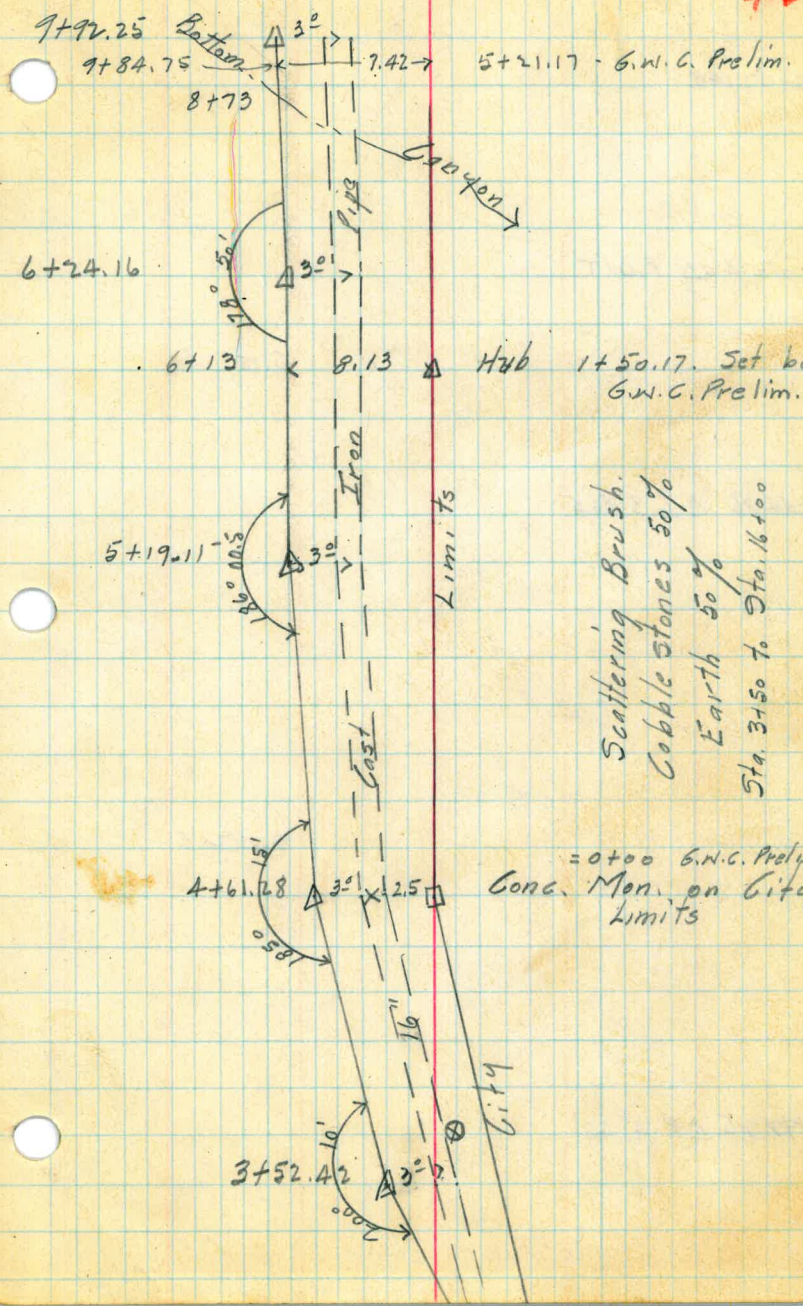 9+92.25
Bottom
3°
9+84.75
7.42
5+21.17 - G.W.C. Prelim.
8+73
Canyon
Pipe
6+24.16
178° 50'
3°
6+13
8.13
Hub 1+50.17. Set
G.W.C. Prelim.
Iron
5+19.11
186° 00.5
3°
Limits
Scattering Brush.
Cobble Stones 50%
Earth 50%
Sta. 3+50 to Sta. 16+00
Cast
= 0+00 G.W.C.
4+61.28
185° 15'
3°
2.5
Conc. Mon. on City
Limits
16"
City
3+52.42
200° 10'
3°